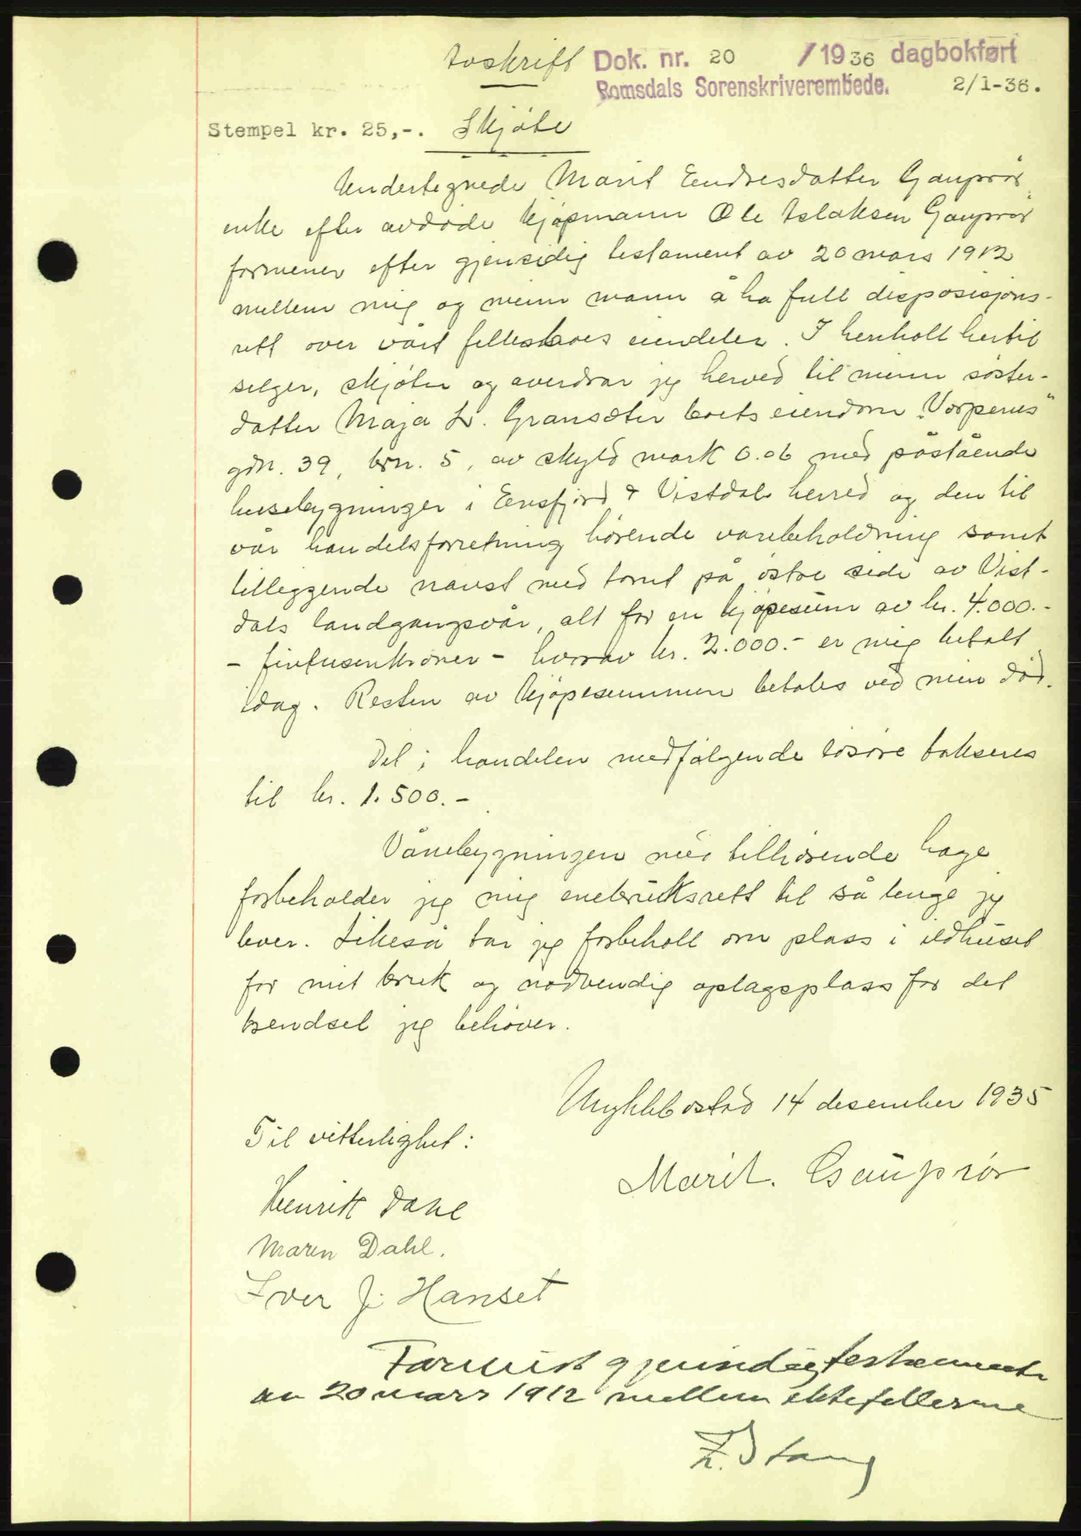 Avskrift
Dok. nr. 20 /1936 dagbokført
Romsdals Sorenskriverembede. 2/1-36.
Stempel kr. 25,-. Skjøte
Undertegnede Marit Eendresdatter Gauprør
enke efter avdøde kjøpmann Ole Aslaksen Gauprør
formener efter gjensidig testament av 20 mars 1912
mellem mig og min mann å ha full disposisjons-
rett over vårt fellesboes eiendeler. I henhold hertil
selger, skjøter og averdrar jeg herved til minn søster-
datter Maja L. Gransæter boets eiendom "Vorpenes"
gdn. 39, brn. 5, av skyld mark 0.06 med påstående
husebygninger i Eresfjord & Vistdal herred og den til
vår handelsforretning hørende varebeholdning samt
tilleggende naust med tomt på østre side av Vist-
dals landgangsvår, alt for en kjøpesum av kr. 4.000.-
- firetusenkroner - hvorav kr. 2.000.- er mig betalt
idag. Resten av kjøpesummen betales ved min død.
Det i handelen medfølgende løsøre takseres
til kr. 1.500.-
Vånebygningen med tilhørende hage
forbeholder jeg mig enebruksrett til så lenge jeg
lever. Likeså tar jeg forbehold om plass i ildhuset
for mit bruk og nødvendig oplagsplass for det
brendsel jeg behøver.
Myklebostad 14 desember 1935
Til vitterlighet:
Marit. Gauprør
Henrik Dahl
Maren Dahl.
Iver J. Hanset
Forevist gjensidig testamente
av 20 mars 1912 mellem ektefellerne
Z. Stang